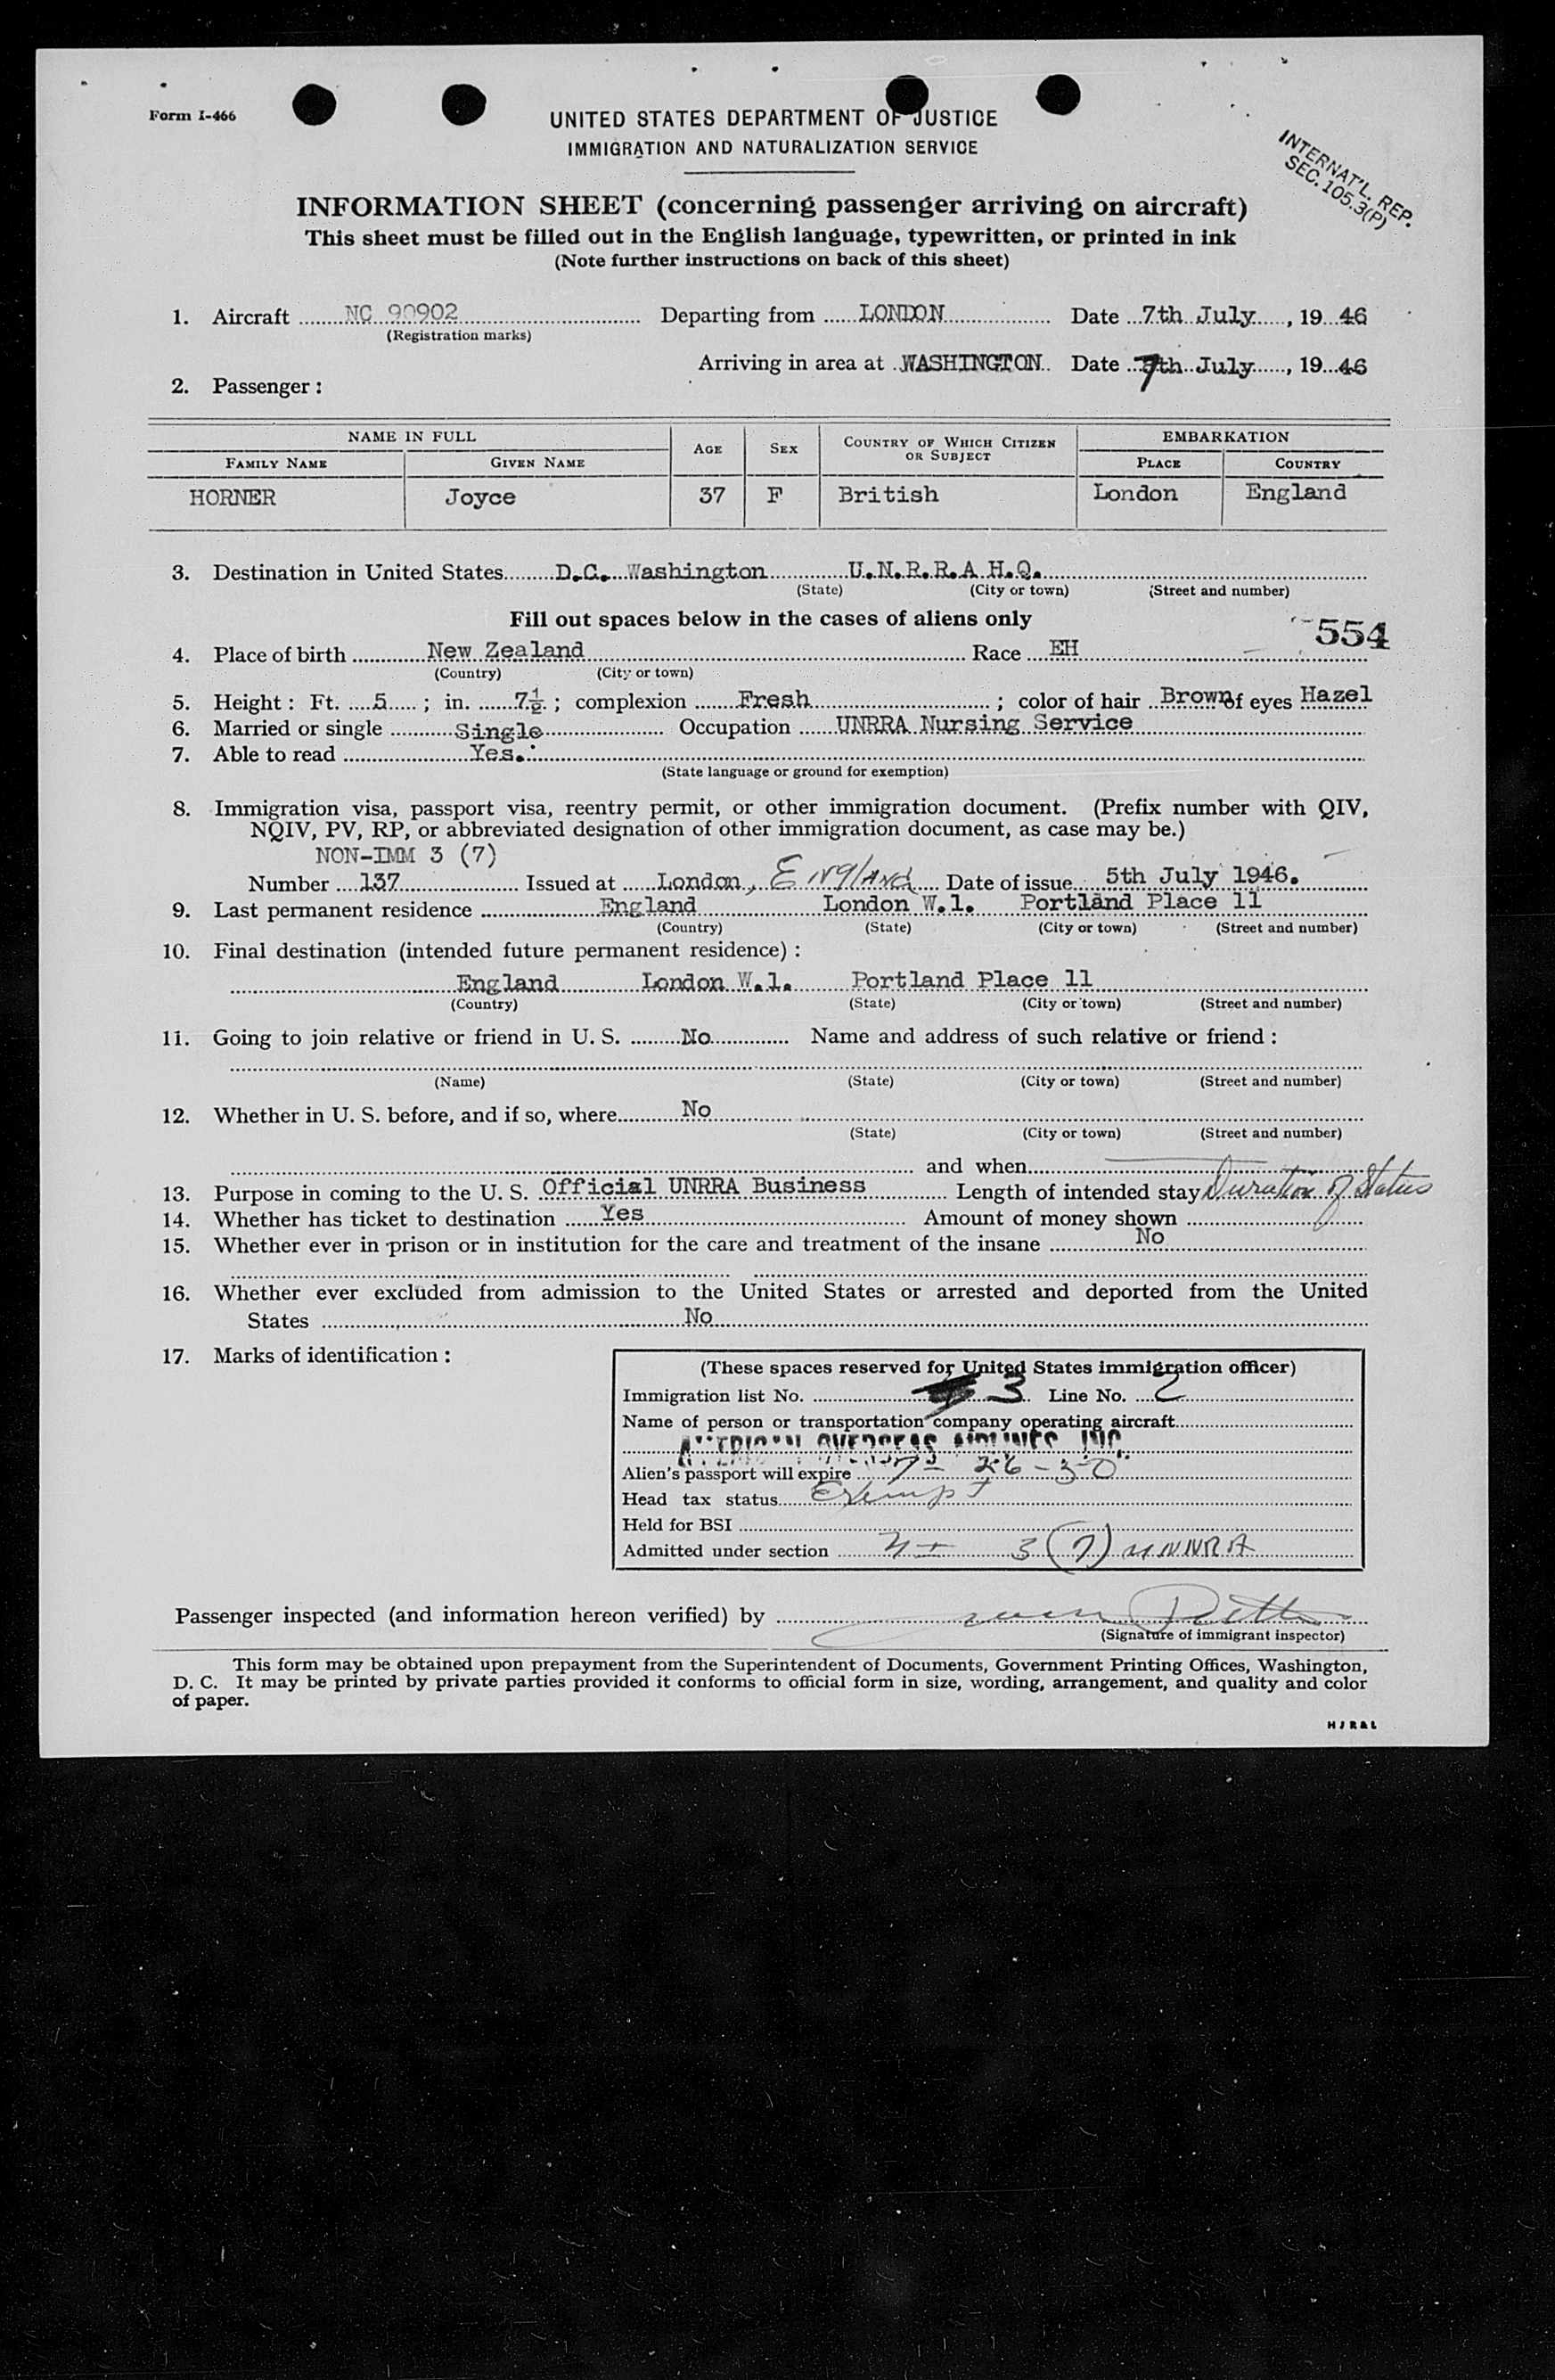 Form I-466
UNITED STATES DEPARTMENT OF JUSTICE
IMMIGRATION AND NATURALIZATION SERVICE
INTERNAT'L. REP.
SEC. 105.3(P)
INFORMATION SHEET (concerning passenger arriving on aircraft)
This sheet must be filled out in the English language, typewritten, or printed in ink
(Note further instructions on back of this sheet)
1. Aircraft NC 90902 Departing from LONDON Date 7th July, 1946
(Registration marks)
Arriving in area at WASHINGTON Date 7th July, 1946
2. Passenger:
NAME IN FULL AGE SEX COUNTRY OF WHICH CITIZEN OR SUBJECT EMBARKATION
FAMILY NAME GIVEN NAME PLACE COUNTRY
HORNER Joyce 37 F British London England
3. Destination in United States D.C. Washington U.N.R.R.A H.Q.
(State) (City or town) (Street and number)
Fill out spaces below in the cases of aliens only
554
4. Place of birth New Zealand Race EH
(Country) (City or town)
5. Height: Ft. 5; in. 7½; complexion Fresh; color of hair Brown of eyes Hazel
6. Married or single Single Occupation UNRRA Nursing Service
7. Able to read Yes.
(State language or ground for exemption)
8. Immigration visa, passport visa, reentry permit, or other immigration document. (Prefix number with QIV,
NQIV, PV, RP, or abbreviated designation of other immigration document, as case may be.)
NON-IMM 3 (7)
Number 137 Issued at London, England Date of issue 5th July 1946.
9. Last permanent residence England London W.1. Portland Place 11
(Country) (State) (City or town) (Street and number)
10. Final destination (intended future permanent residence):
England London W.1. Portland Place 11
(Country) (State) (City or town) (Street and number)
11. Going to join relative or friend in U. S. No Name and address of such relative or friend:
(Name) (State) (City or town) (Street and number)
12. Whether in U. S. before, and if so, where No
(State) (City or town) (Street and number)
and when
13. Purpose in coming to the U. S. Official UNRRA Business Length of intended stay Duration of Status
14. Whether has ticket to destination Yes Amount of money shown
15. Whether ever in prison or in institution for the care and treatment of the insane No
16. Whether ever excluded from admission to the United States or arrested and deported from the United
States No
17. Marks of identification:
(These spaces reserved for United States immigration officer)
Immigration list No. 3 Line No. 2
Name of person or transportation company operating aircraft
AMERICAN OVERSEAS AIRLINES, INC.
Alien's passport will expire 7-26-50
Head tax status Exempt
Held for BSI
Admitted under section 3 (7) UNNRA
Passenger inspected (and information hereon verified) by
(Signature of immigrant inspector)
This form may be obtained upon prepayment from the Superintendent of Documents, Government Printing Offices, Washington,
D. C. It may be printed by private parties provided it conforms to official form in size, wording, arrangement, and quality and color
of paper.
HJR&L